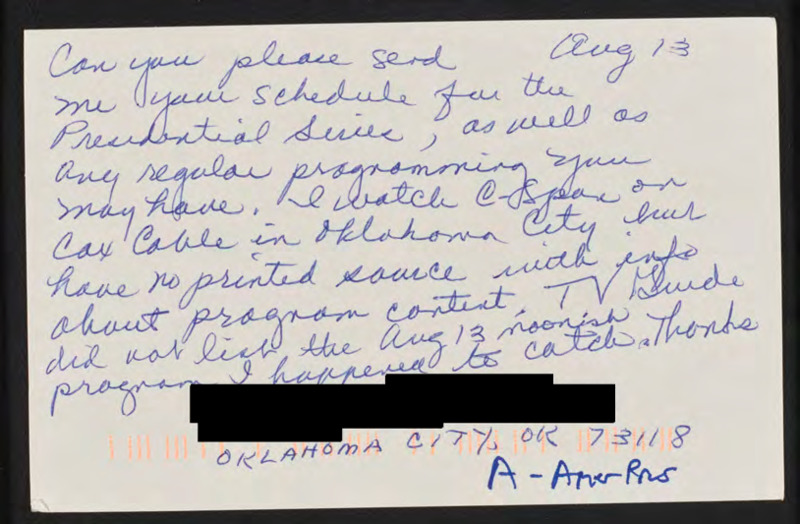 Aug 13
Can you please send
me your schedule for the
Presidential Series, as well as
any regular programming you
may have. I watch C-Span on
Cox Cable in Oklahoma City but
have no printed source with info
about program content. TV Guide
did not list the Aug 13 noonish
program I happened to catch. Thanks
OKLAHOMA CITY, OK 73118
A - Amer Pres